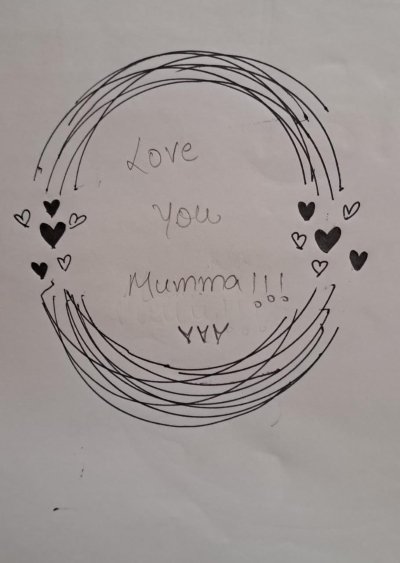 Love
You
Mumma!!!